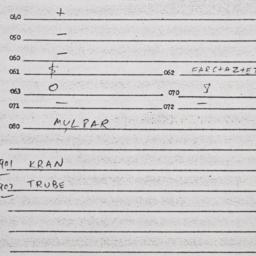 040 +
050 —
060 —
061 $ 062
063 O 070 8
071 — 072 —
080 MULPAR
901 KRAN
902 TRUBE